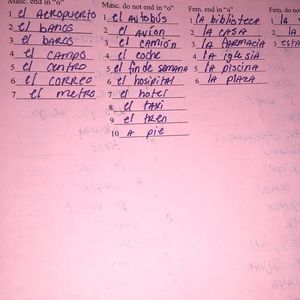 Masc. end in "o"
1 el AEROPUERTO
2 el BANCO
3 el BARCO
4 el CAMPO
5 el CENTRO
6 el CORREO
7 el metro
Masc. do not end in "o"
1 el AUtobús
2 el avión
3 el camión
4 el coche
5 el fin de semana
6 el hospital
7 el hotel
8 el taxi
9 el tren
10 a pie
Fem. end in "a"
1 la biblioteca
2 la casa
3 la farmacia
4 la iglesia
5 la piscina
6 la plaza
Fem. do not
1 la
2 la
3